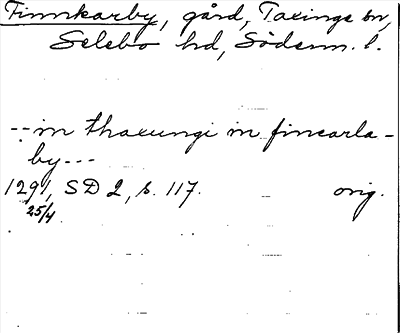 Finnkarby, gård, Taxinge sn,
Selebo hd, Söderm. l.
-- in thaxungi in fincarla-
by ---
1291, SD 2, s. 117. orig.
25/4.